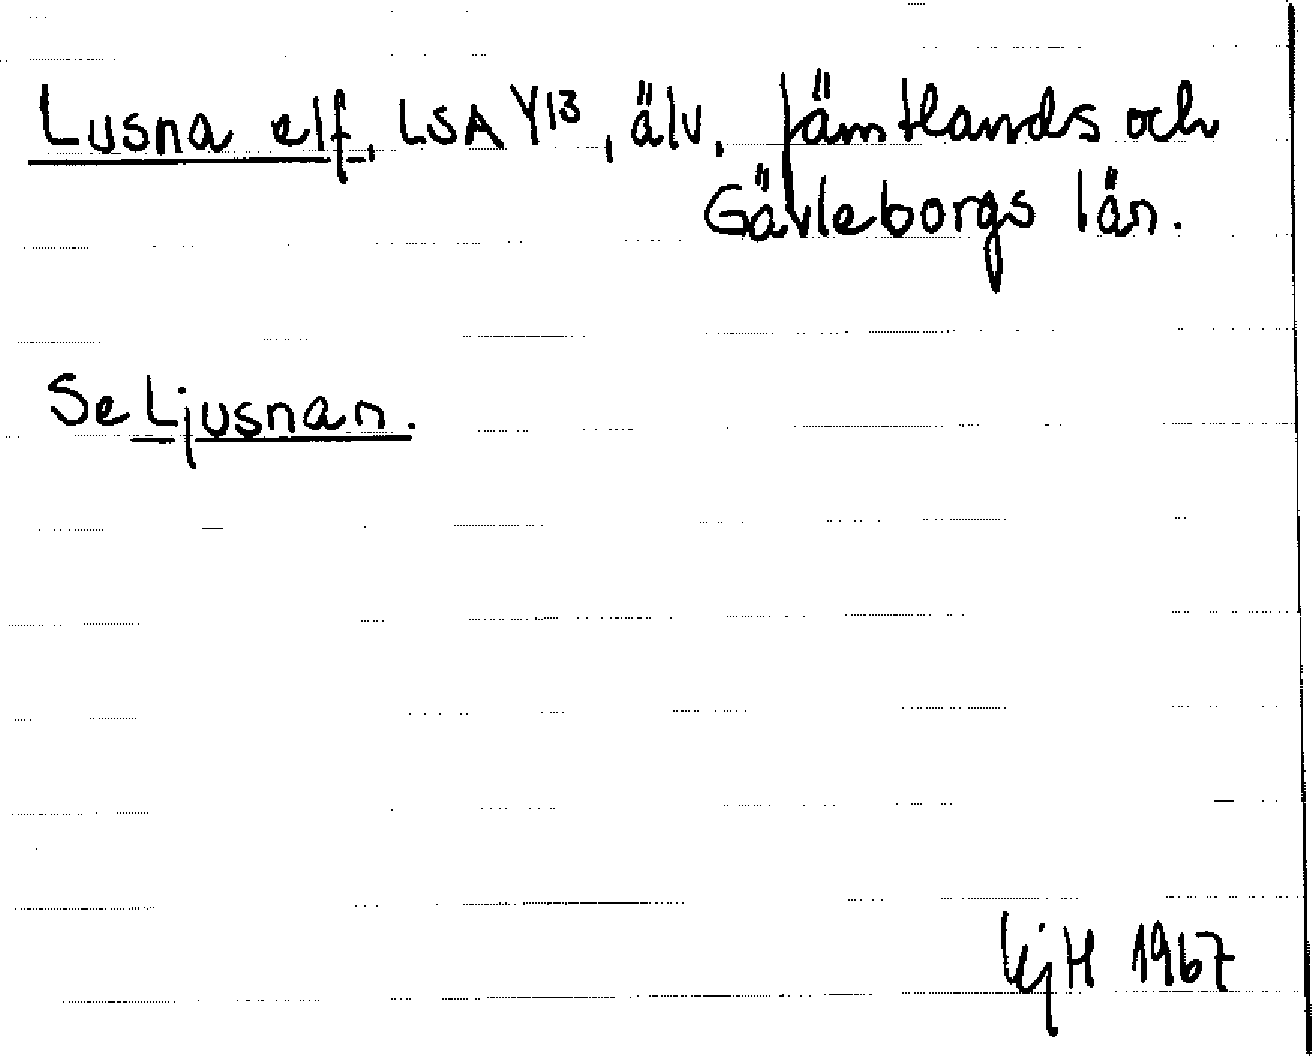 Lusna elf, LSA Y13, älv. Jämtlands och
Gävleborgs län.
Se Ljusnan.
KjH 1967